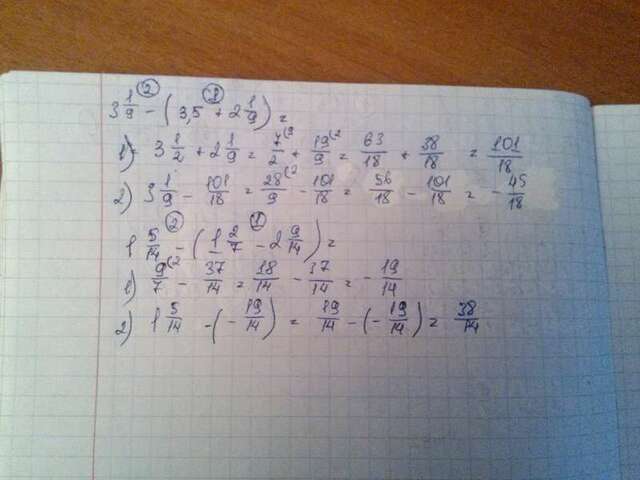 3 1/9 - (3,5 + 2 1/9) =
1) 3 1/2 + 2 1/9 = 7/2 + 19/9 = 63/18 + 38/18 = 101/18
2) 3 1/9 - 101/18 = 28/9 - 101/18 = 56/18 - 101/18 = - 45/18
1 5/14 - (1 2/7 - 2 9/14) =
1) 9/7 - 37/14 = 18/14 - 37/14 = - 19/14
2) 1 5/14 - (- 19/14) = 19/14 - (- 19/14) = 38/14